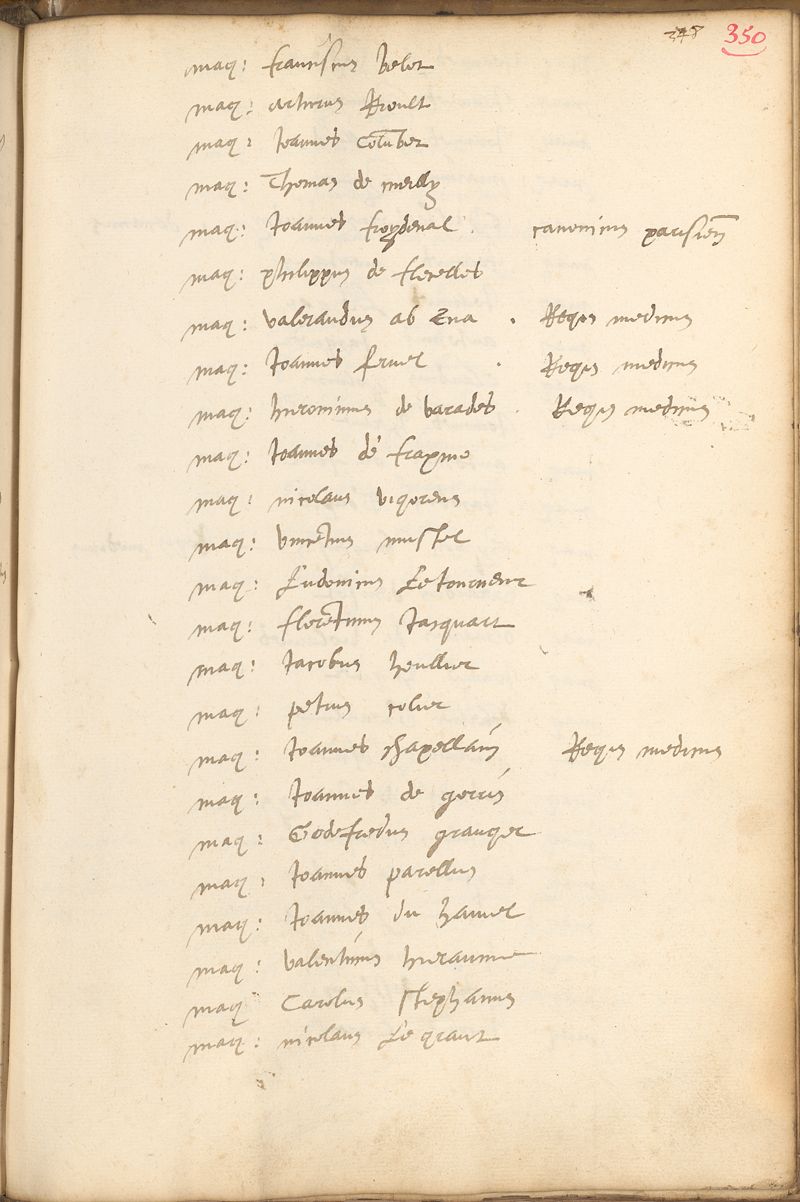 248 350
mag: franciscus belot
mag: arturus Kroult
mag: Joannes Columbet
mag: Thomas de merlly
mag: Joannes froydeval . canonicus parisien
mag: philippus de flecelles
mag: valerandus ab Ena . Regis medicus
mag: Joannes fernel . Regis medicus
mag: hieronimus de varades . Regis medicus
mag: Joannes de fraxino
mag: nicolaus vigoreus
mag: vincetius mustel
mag: Ludovicus Letourneur
mag: florentinus Jacquart
mag: Jacobus houllier
mag: petrus colier
mag: Joannes chapellain Regis medicus
mag: Joannes de gorris
mag: Godefredus granger
mag: Joannes parellus
mag: Joannes du hamel
mag: valentinus hieraume
mag Carolus stephanus
mag: nicolaus Le grant